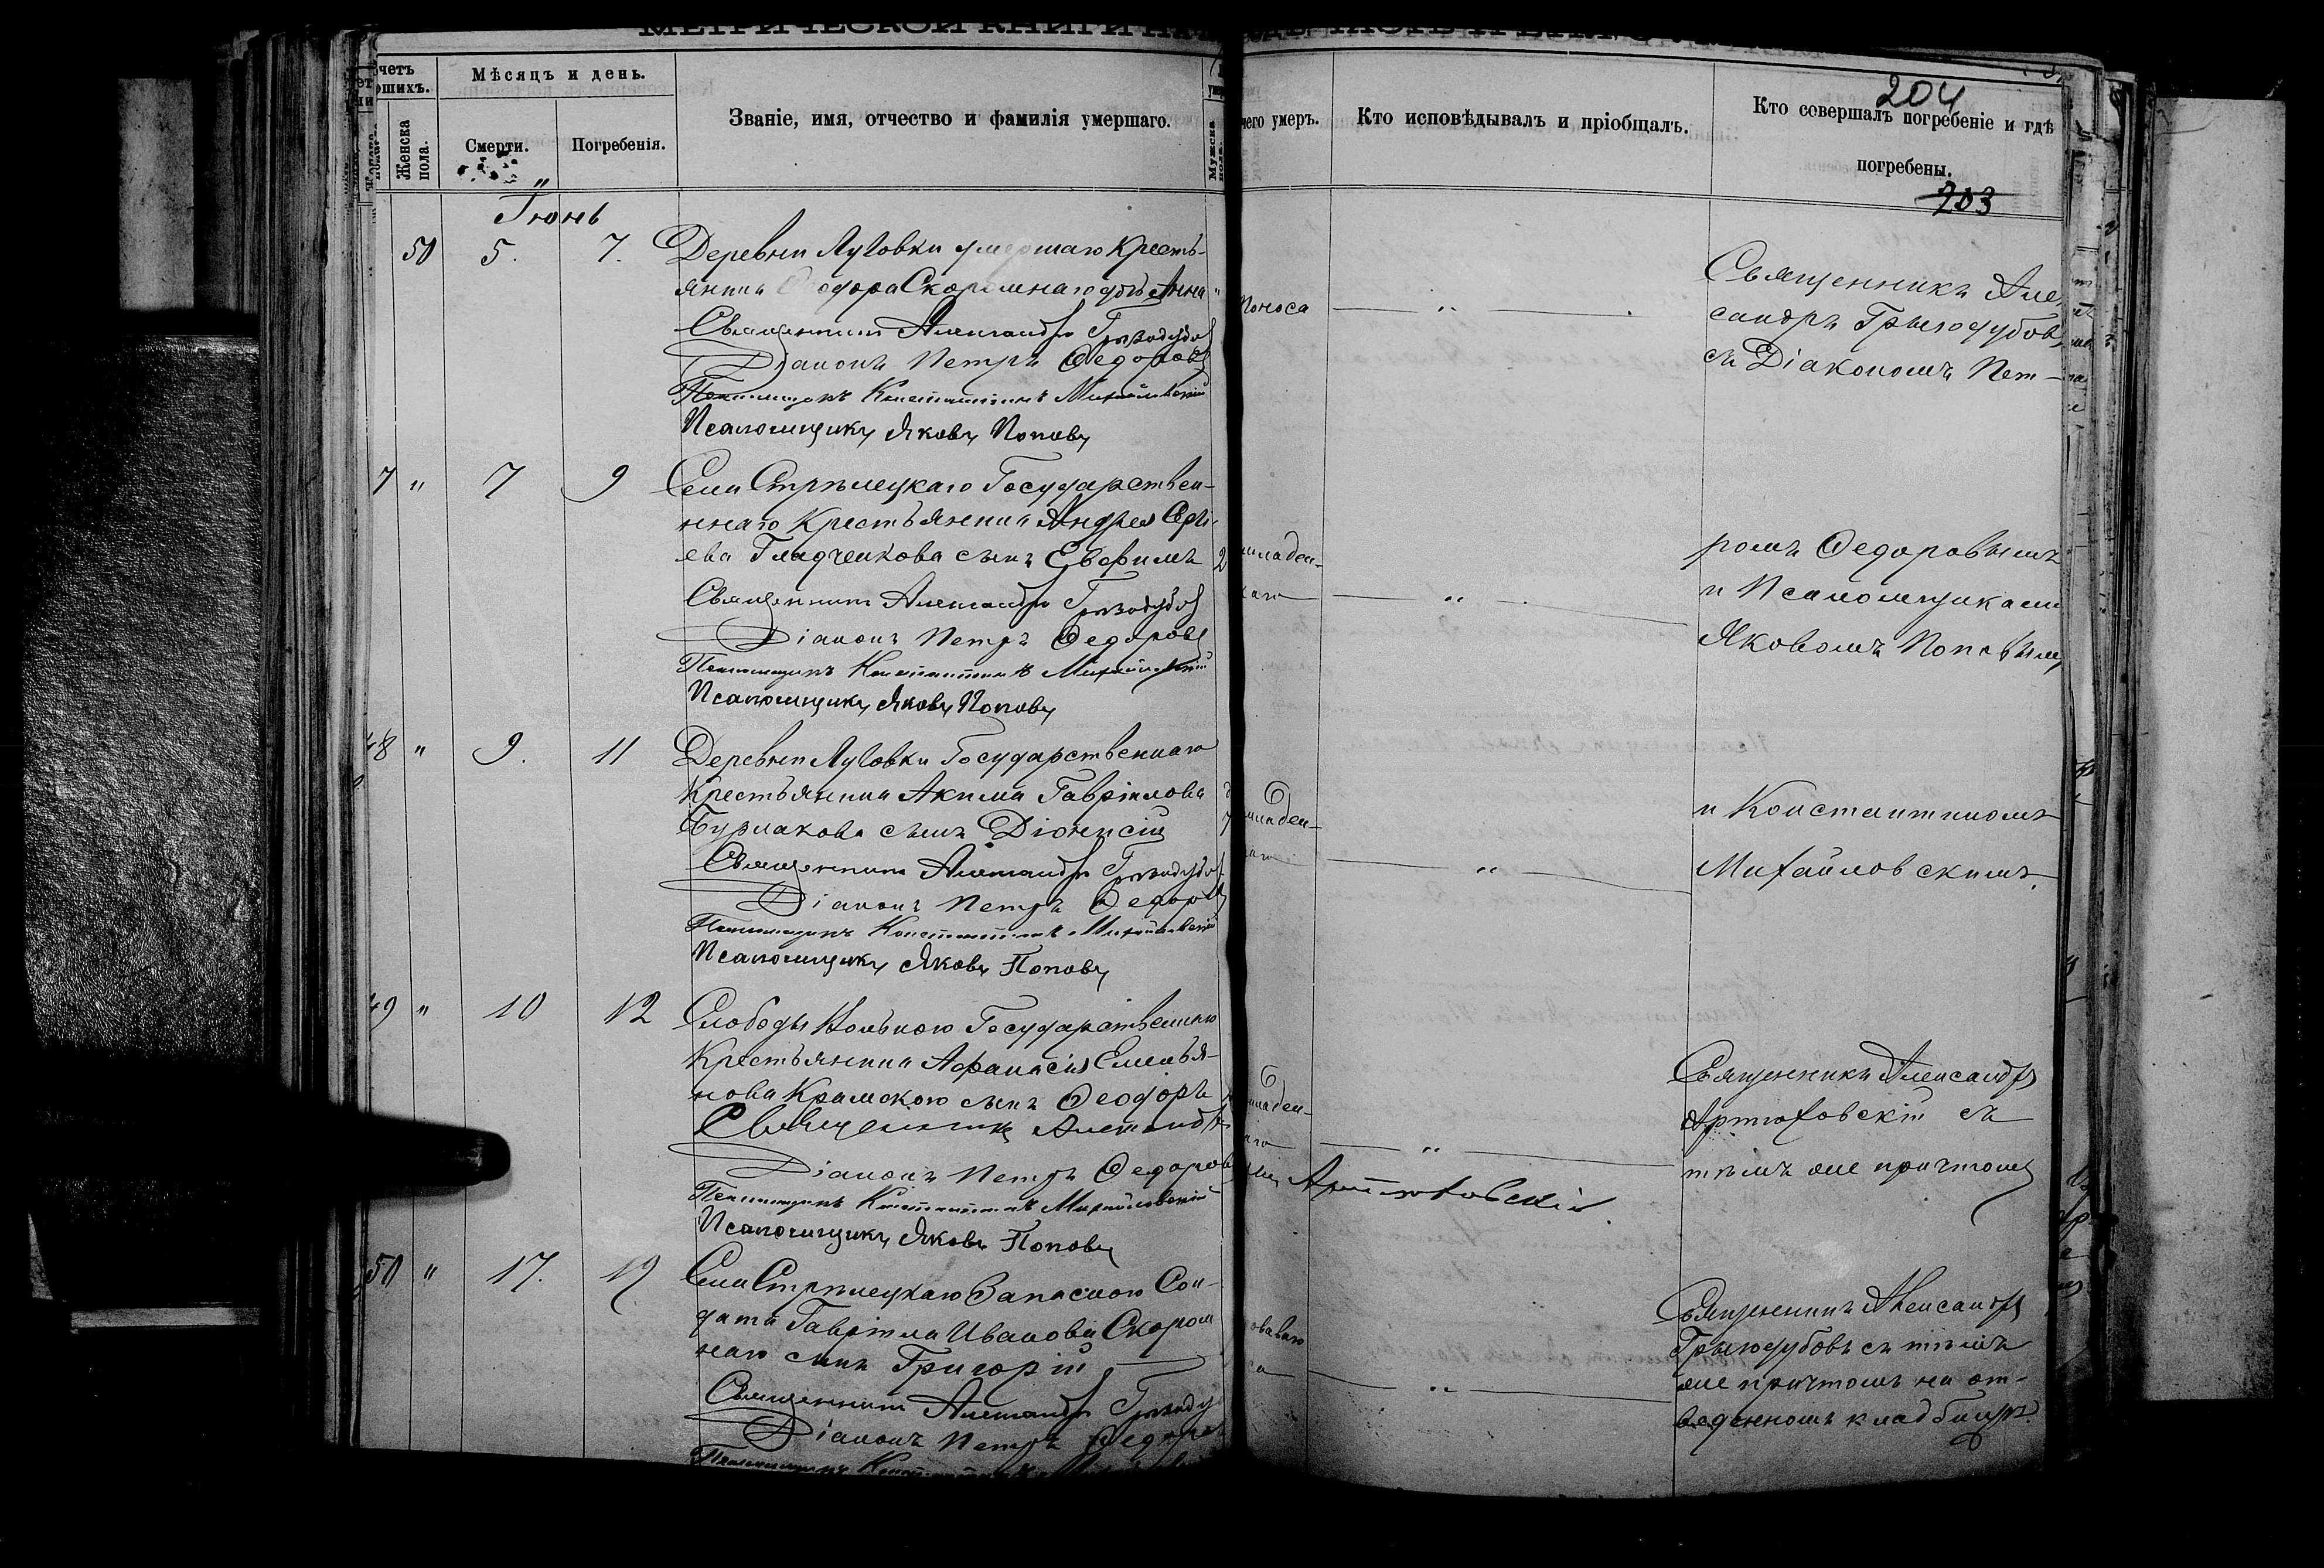 четъ
ршихъ.
Мѣсяцъ и день.
Женска
пола.
Смерти.
Погребенія.
Званіе, имя, отчество и фамилія умершаго.
Мужска
пола.
чего умеръ.
Кто исповѣдывалъ и пріобщалъ.
204
Кто совершалъ погребеніе и гдѣ
погребены.
203
Іюнь
50 5. 7. Деревни Луговки умершаго Кресть-
янина Ѳеодора Скоромнаго дочь Анна
Поноса
Священникъ Александръ Грызодубовъ
Діаконъ Петръ Ѳедоровъ
Псаломщикъ Константинъ Михайловскій
Псаломщикъ Яковъ Поповъ
Священникъ Алек
сандръ Грызодубовъ
съ Діакономъ Пет-
7 " 7 9 Села Стрѣлецкаго Государствен-
ннаго Крестьянина Андрея
ева Гладченкова сынъ Евфимъ 2
младен-
Священникъ Александръ Грызодубовъ
Діаконъ Петръ Ѳедоровъ
Псаломщикъ Константинъ Михайловскій
Псаломщикъ Яковъ Поповъ
ромъ Ѳедоровымъ
и Псаломщиками
Яковомъ Поповымъ
48 " 9. 11 Деревни Луговки Государственнаго
Крестьянина Акима Гаврiилова
Бурлакова сынъ Діонисій
младен-
Священникъ Александръ Грызодубовъ
Діаконъ Петръ Ѳедоровъ
Псаломщикъ Константинъ Михайловскій
Псаломщикъ Яковъ Поповъ
и Константиномъ
Михайловскимъ.
49 " 10 12 Слободы Государственнаго
Крестьянина Афанасія Емелья-
нова Крамскаго сынъ Ѳеодоръ
младен-
Священникъ Александръ
Артюховскій
Діаконъ Петръ Ѳедоровъ
Псаломщикъ Константинъ Михайловскій
Псаломщикъ Яковъ Поповъ
Священникъ Александръ
Артюховскій съ
тѣмъ же причтомъ
50 " 17. 19 Села Стрѣлецкаго Запаснаго Сол-
дата Гавріила Иванова Скором
наго сынъ Григорій
Священникъ Александръ
Діаконъ Петръ Ѳедоровъ
Священникъ Александръ
Грызодубовъ съ тѣмъ
же причтомъ на от-
веденномъ кладбищѣ.